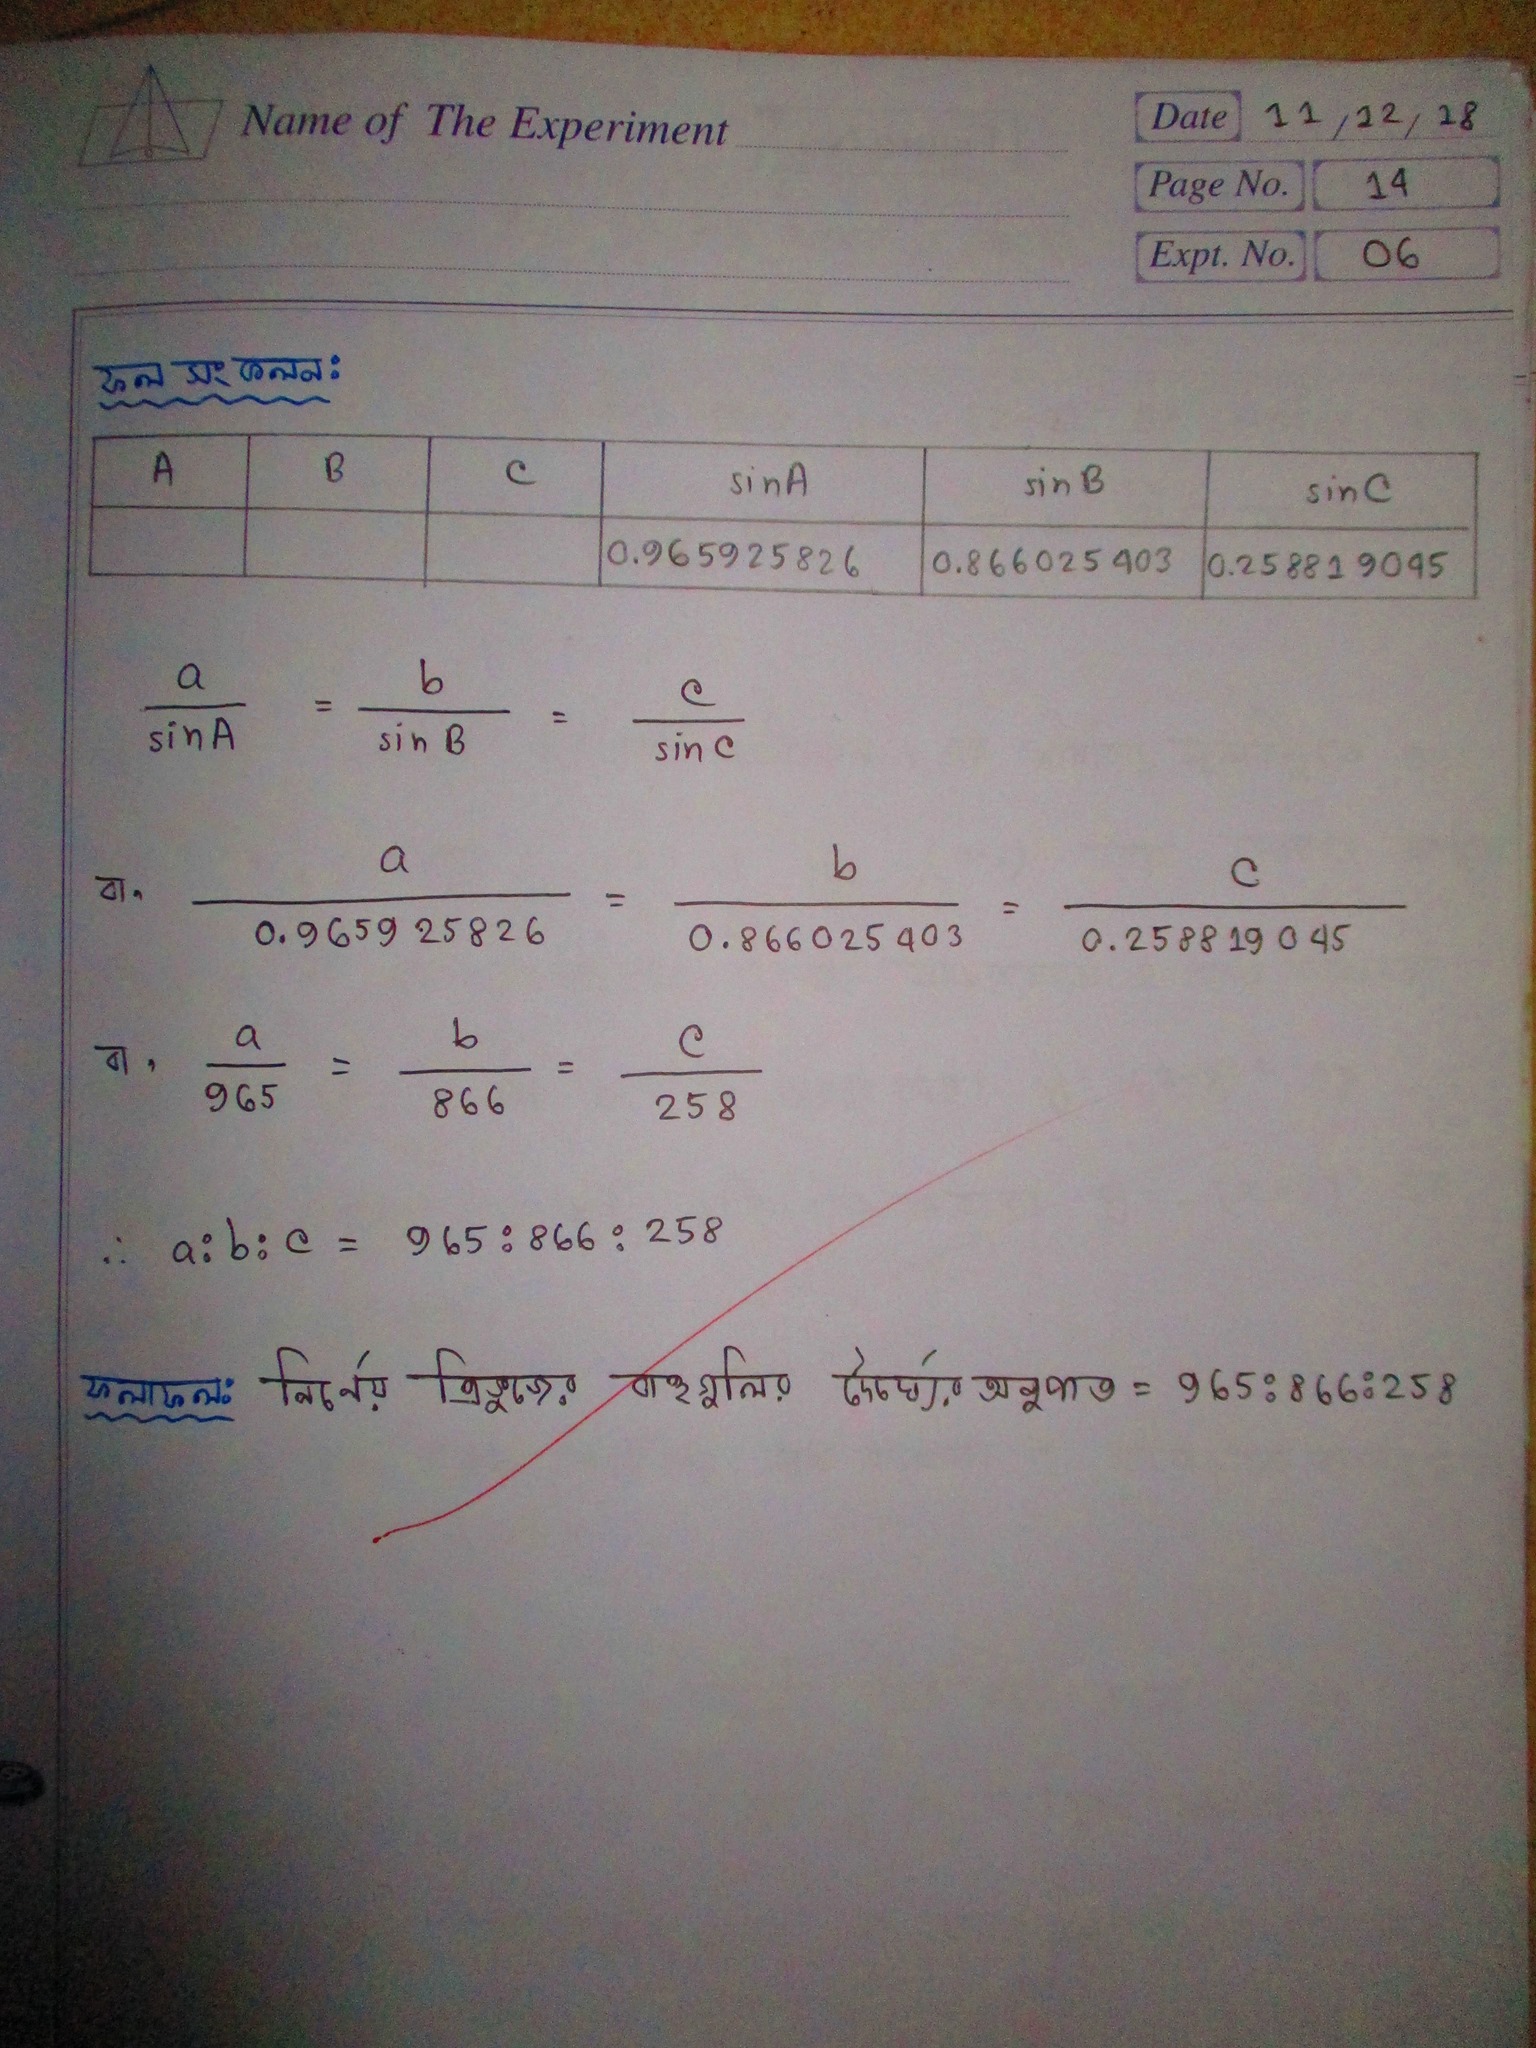 Name of The Experiment
Date 11/12/18
Page No. 14
Expt. No. 06
ফল সংকলনঃ
A B C sinA sinB sinC
0.965925826 0.866025403 0.258819045
a/sinA = b/sinB = c/sinC
বা, a/0.965925826 = b/0.866025403 = c/0.258819045
বা, a/965 = b/866 = c/258
∴ a:b:c = 965:866:258
ফলাফলঃ নির্ণেয় ত্রিভুজের বাহুগুলির দৈর্ঘ্যের অনুপাত = 965:866:258